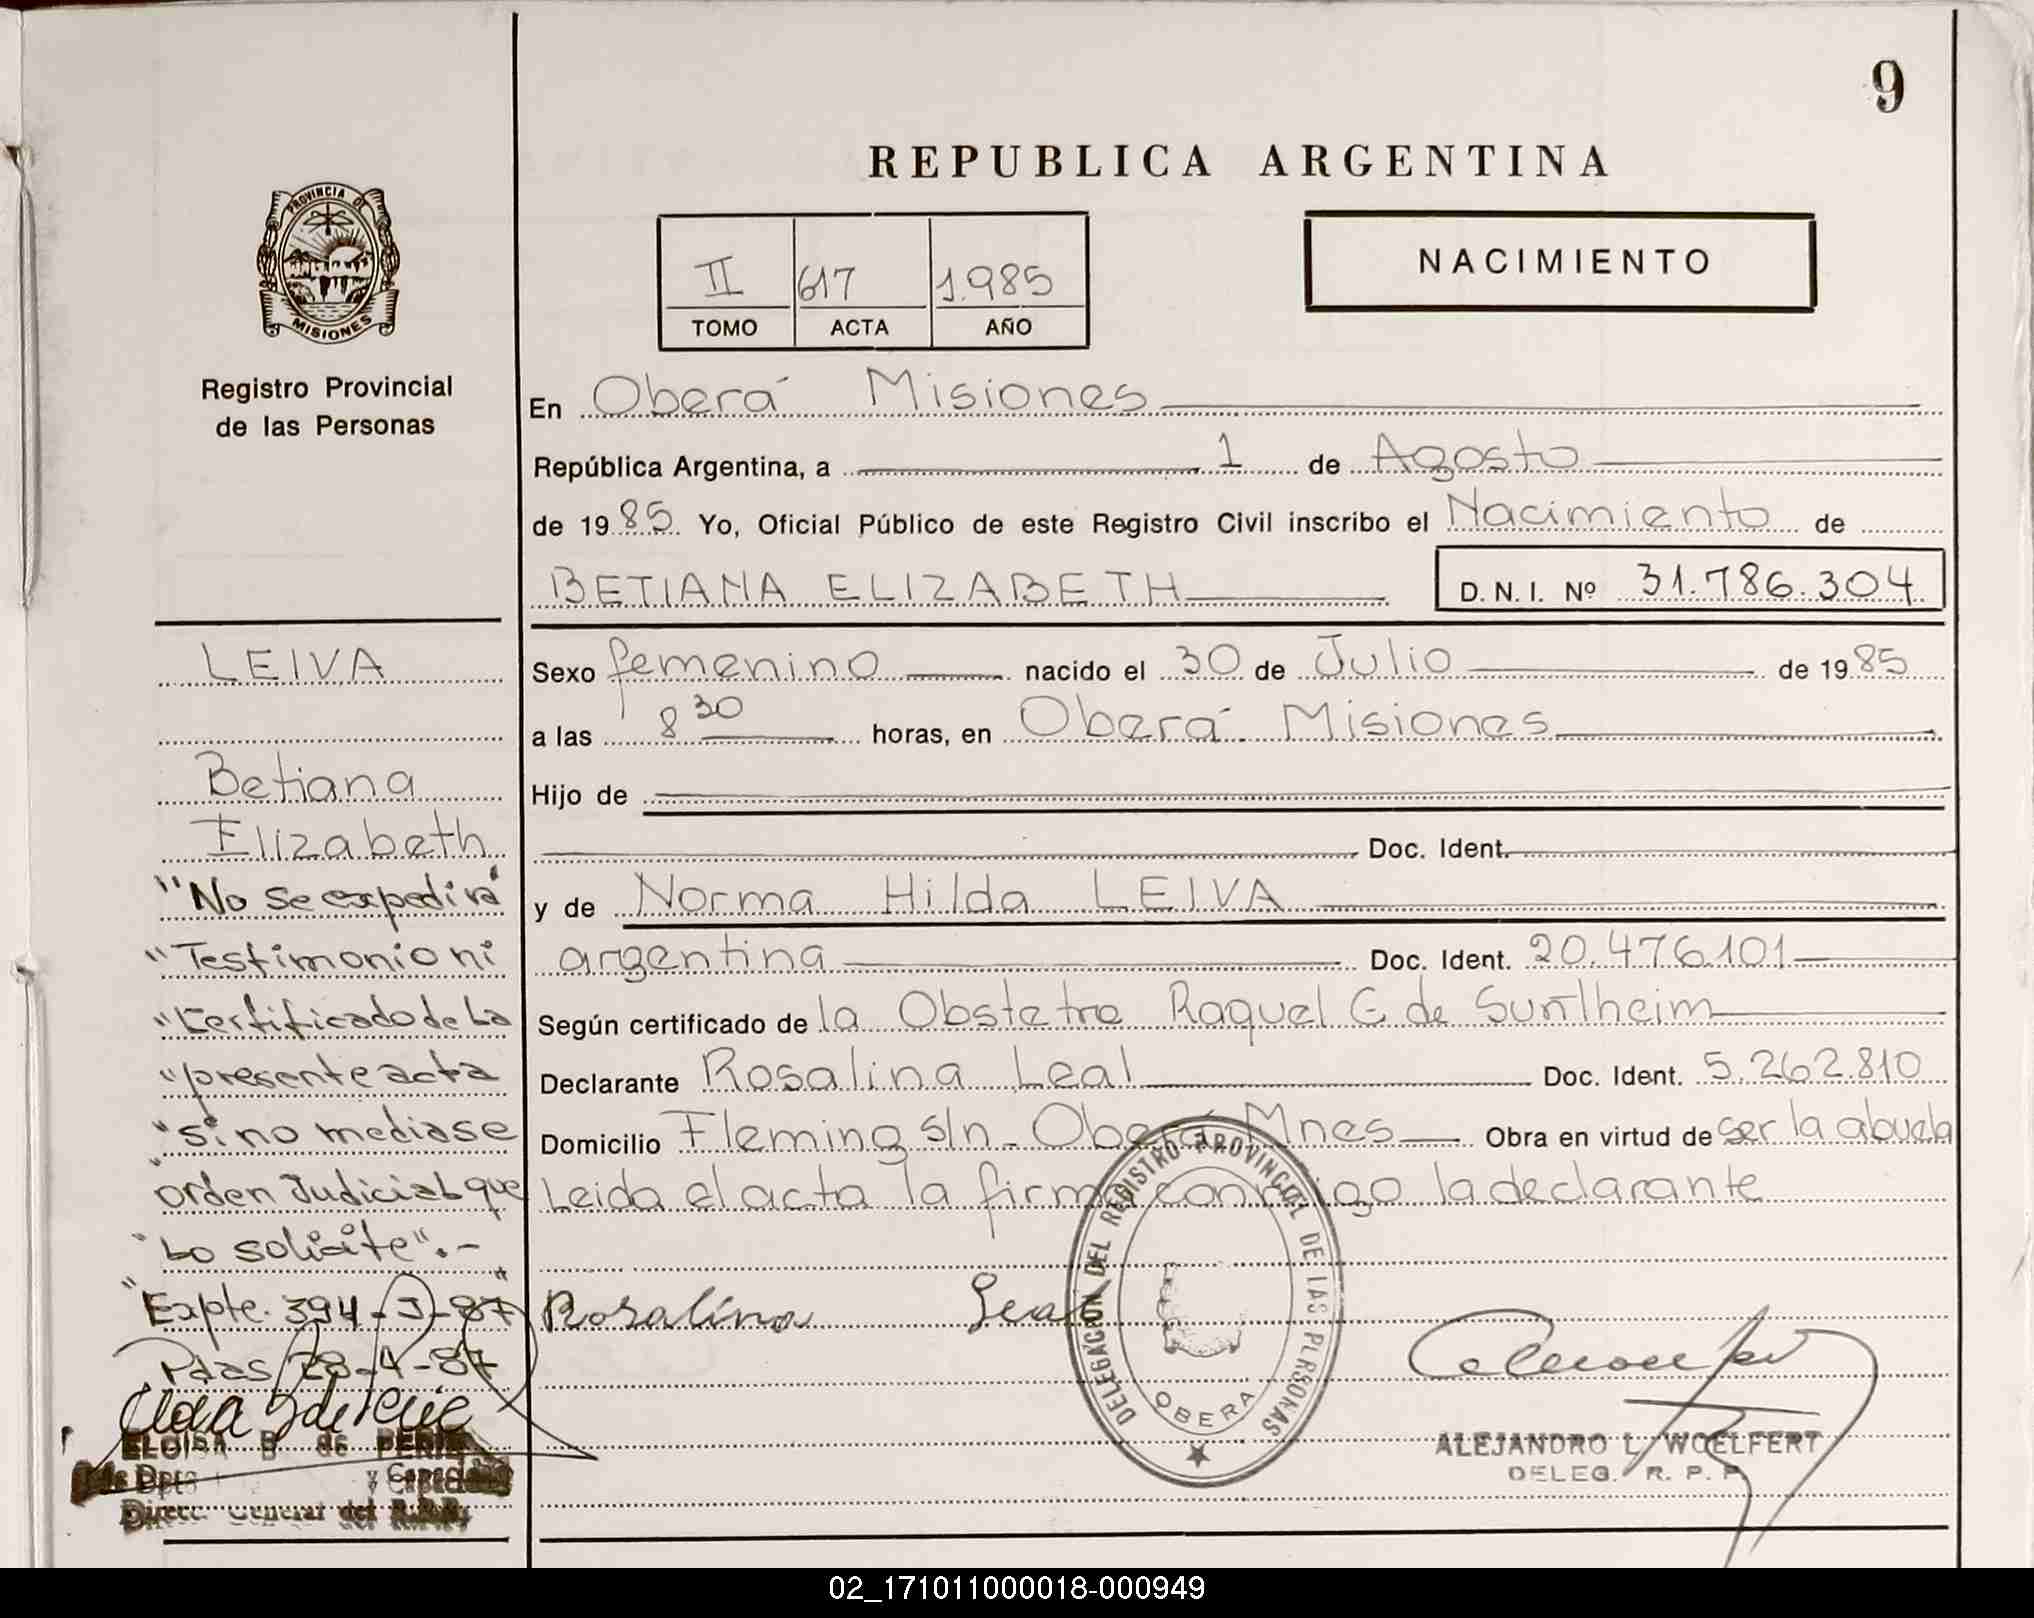 9
REPUBLICA ARGENTINA
PROVINCIA DE
MISIONES
Registro Provincial
de las Personas
II 617 1.985
TOMO ACTA AÑO
NACIMIENTO
En Oberá Misiones
República Argentina, a 1 de Agosto
de 1985. Yo, Oficial Público de este Registro Civil inscribo el Nacimiento de
BETIANA ELIZABETH D. N. I. Nº 31.786.304
Sexo femenino nacido el 30 de Julio de 1985
a las 8 30 horas, en Oberá Misiones
Hijo de
Doc. Ident.
y de Norma Hilda LEIVA
argentina Doc. Ident. 20.476.101
Según certificado de la Obstetra Raquel G de
Declarante Rosalina Leal Doc. Ident. 5.262.810
Domicilio Fleming s/n - Oberá Mnes Obra en virtud de ser la abuela
Leida el acta la firma conmigo la declarante
Rosalina Leal
DELEGACION DEL REGISTRO PROVINCIAL DE LAS PERSONAS
OBERA
ALEJANDRO L. WOELFERT
DELEG. R. P. P.
LEIVA
Betiana
Elizabeth
"No se expedirá
"Testimonio ni
"Certificado de La
"presente acta
"si no mediase
"orden Judicial que
"Lo solicite".-
"Expte. 394-J-87"
Pdas 28-4-87
ELOISA B. de
Dpto y
Direcc. General del
02_171011000018-000949